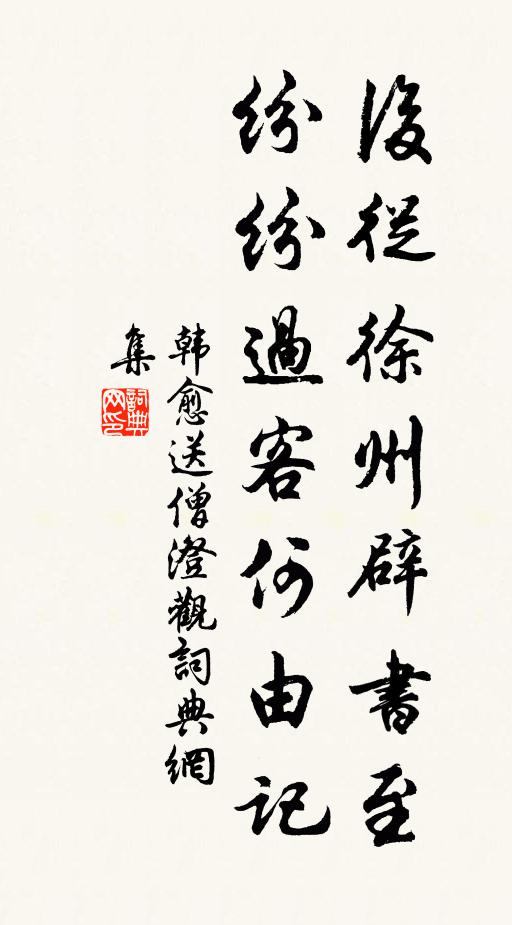 後從徐州辟書至
紛紛過客何由記
韩愈送僧澄觀詞典網
集
詞典
网印